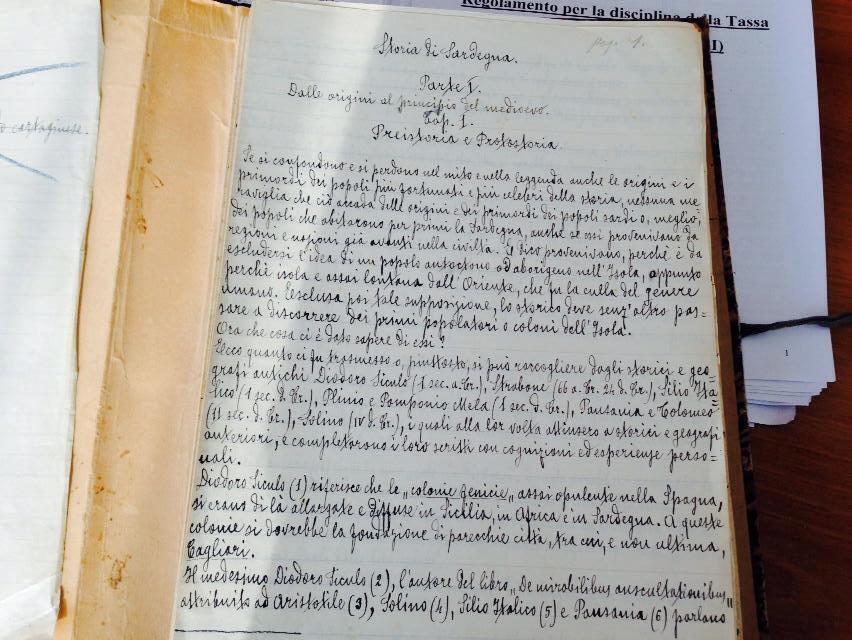 Regolamento per la disciplina della Tassa
I)
1
cartaginese.
pag. 1.
Storia di Sardegna.
Parte I.
Dalle origini al principio del medioevo.
Cap. I.
Preistoria e Protostoria
Se si confondono e si perdono nel mito e nella leggenda anche le origini e i
primordi dei popoli più fortunati e più celebri della storia, nessuna me
raviglia che ciò accada delle origini e dei primordi dei popoli sardi o, meglio,
dei popoli che abitarono per primi la Sardegna, anche se essi provenivano da
regioni e nazioni già avanti nella civiltà. E dico provenivano, perchè è da
escludersi l'idea di un popolo autoctono od aborigeno nell'Isola, appunto
perchè isola e assai lontana dall'Oriente, che fu la culla del genere
umano. Esclusa poi tale supposizione, lo storico deve senz'altro pas=
sare a discorrere dei primi popolatori o coloni dell'Isola.
Ora che cosa ci è dato sapere di essi?
Ecco quanto ci fu trasmesso o, piuttosto, si può raccogliere dagli storici e geo=
grafi antichi Diodoro Siculo (1 sec. a. Cr.), Strabone (66 a. Cr. 24 d. Cr.), Silio Ita=
lico (1 sec. d. Cr.), Plinio e Pomponio Mela (1 sec. d. Cr.), Pausania e Tolomeo
(11 sec. d. Cr.), Solino (IV d. Cr.), i quali alla lor volta attinsero a storici e geografi
anteriori, e completarono i loro scritti con cognizioni ed esperienze perso=
nali.
Diodoro Siculo (1) riferisce che le „colonie fenicie„ assai opulente nella Spagna,
si erano di là allargate e diffuse in Sicilia, in Africa e in Sardegna. A queste
colonie si dovrebbe la fondazione di parecchie città, tra cui, e non ultima,
Cagliari.
Il medesimo Diodoro Siculo (2), l'autore del libro „De mirabilibus auscultationibus„
attribuito ad Aristotile (3), Solino (4), Silio Italico (5) e Pausania (6) parlano